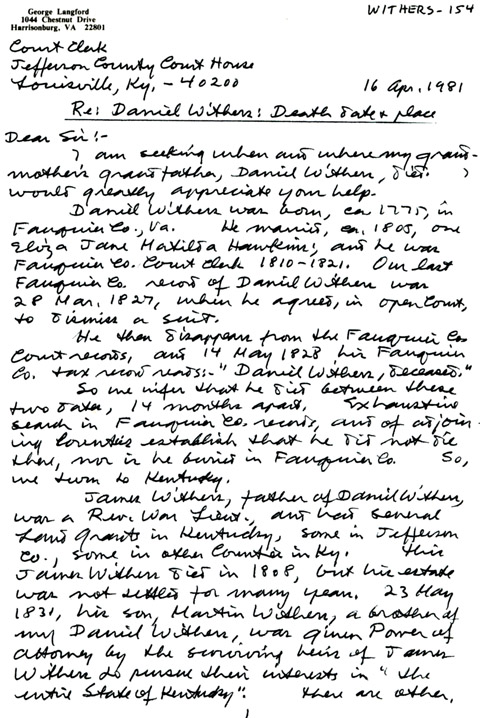 George Langford
1044 Chestnut Drive
Harrisonburg, VA 22801
WITHERS-154
Court Clerk
Jefferson County Court House
Louisville, Ky. - 40200
16 Apr. 1981
Re: Daniel Withers: Death date & place
Dear Sir:-
I am seeking when and where my grand-
mother's grandfather, Daniel Withers, died. I
would greatly appreciate your help.
Daniel Withers was born, ca 1775, in
Fauquier Co., Va. He married, ca. 1805, one
Eliza Jane Matilda Hawkins; and he was
Fauquier Co. Court Clerk 1810-1821. Our last
Fauquier Co. record of Daniel Withers was
28 Mar. 1827, when he agreed, in open Court,
to dismiss a suit.
He then disappears from the Fauquier Co.
Court records, and 14 May 1828 his Fauquier
Co. tax record reads:- "Daniel Withers, deceased."
So we infer that he died between these
two dates, 14 months apart. Exhaustive
search in Fauquier Co. records, and of adjoin-
ing Counties establish that he did not die
there, nor is he buried in Fauquier Co. So,
we turn to Kentucky.
James Withers, father of Daniel Withers,
was a Rev. War Lieut., and had several
Land grants in Kentucky, some in Jefferson
Co., some in other Counties in Ky. This
James Withers died in 1808, but his estate
was not settled for many years. 23 May
1831, his son, Martin Withers, a brother of
my Daniel Withers, was given Power of
Attorney by the surviving heirs of James
Withers to pursue their interests in "the
entire State of Kentucky". There are other,
1